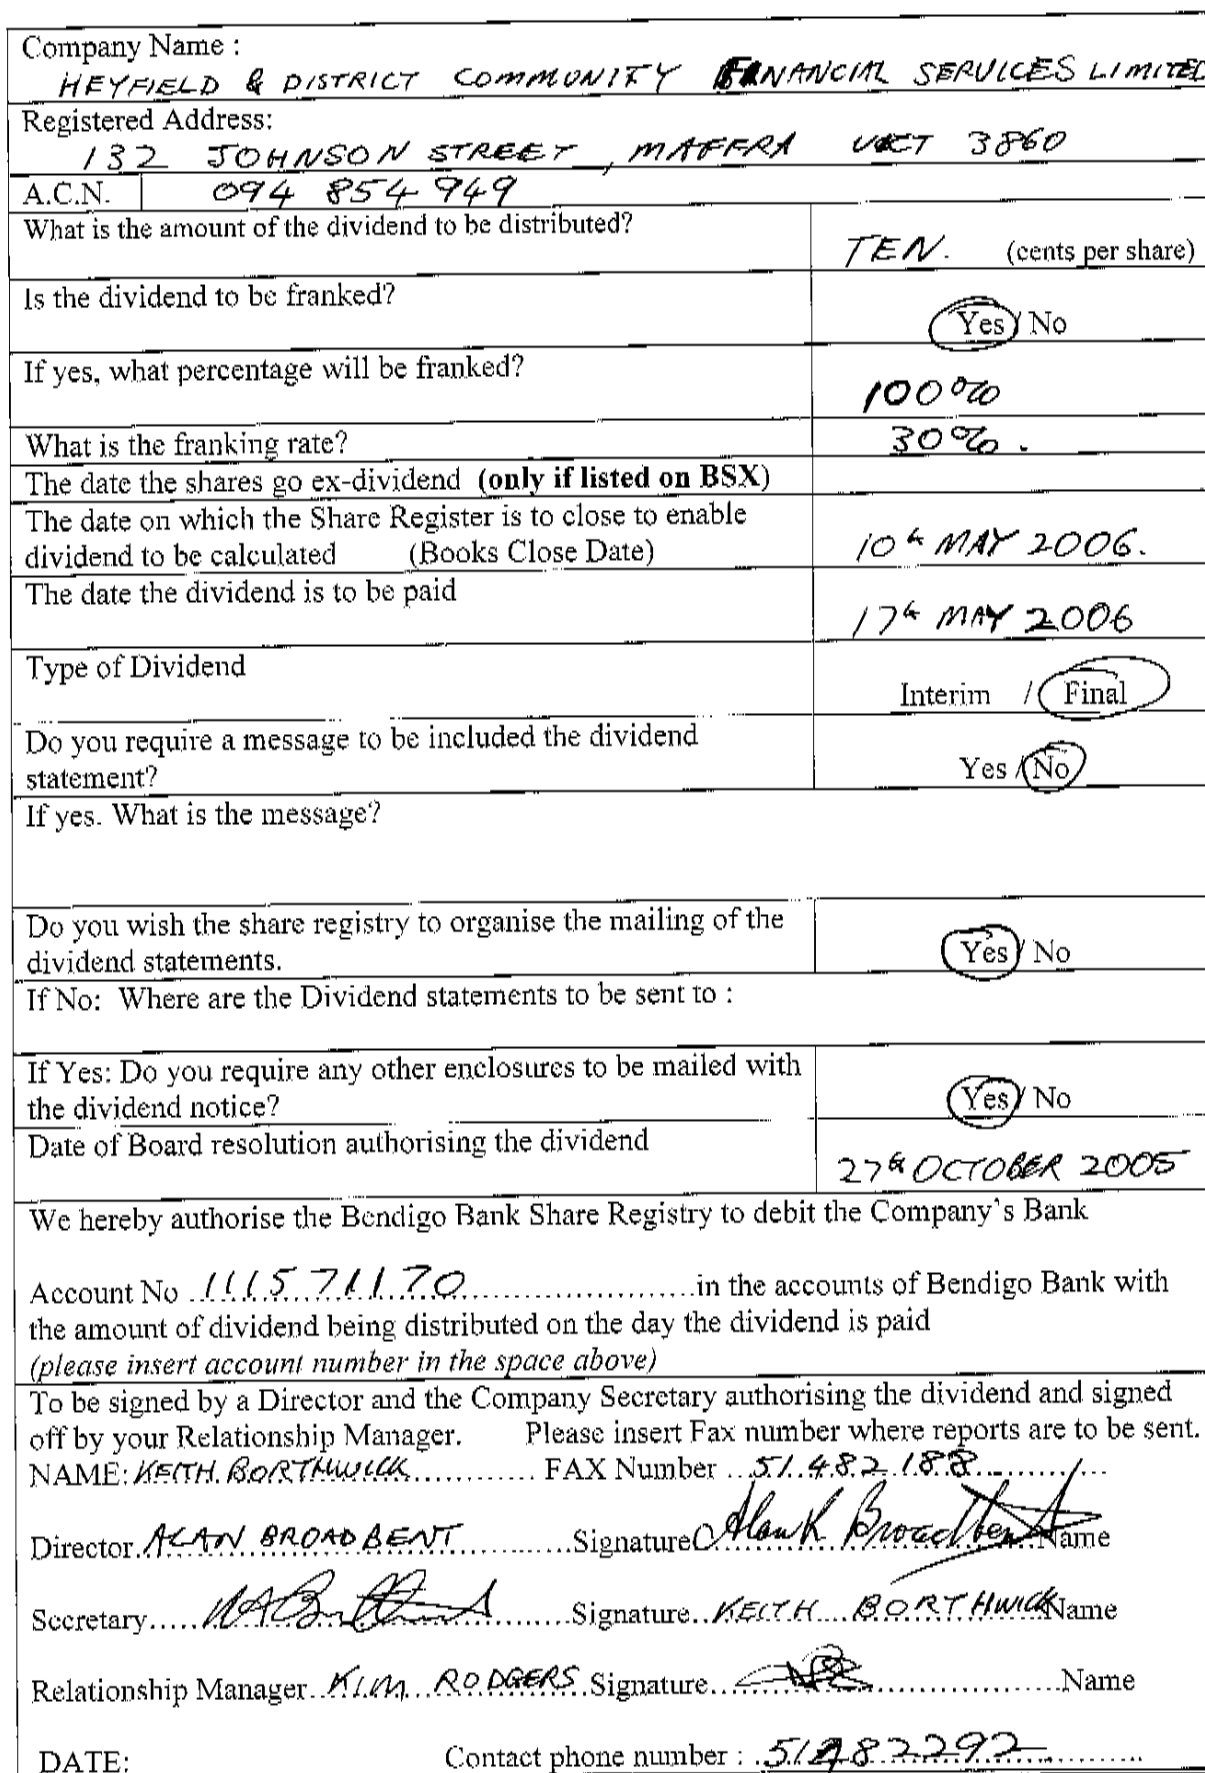 Company Name :
HEYFIELD & DISTRICT COMMUNITY FINANCIAL SERVICES LIMITED
Registered Address:
132 JOHNSON STREET, MAFFRA VICT 3860
A.C.N. 094 854 949
What is the amount of the dividend to be distributed?
TEN. (cents per share)
Is the dividend to be franked?
Yes / No
If yes, what percentage will be franked?
100%
What is the franking rate? 30%.
The date the shares go ex-dividend (only if listed on BSX)
The date on which the Share Register is to close to enable
dividend to be calculated (Books Close Date) 10th MAY 2006.
The date the dividend is to be paid
17th MAY 2006
Type of Dividend
Interim / Final
Do you require a message to be included the dividend
statement? Yes / No
If yes. What is the message?
Do you wish the share registry to organise the mailing of the
dividend statements. Yes / No
If No: Where are the Dividend statements to be sent to :
If Yes: Do you require any other enclosures to be mailed with
the dividend notice? Yes / No
Date of Board resolution authorising the dividend
27th OCTOBER 2005
We hereby authorise the Bendigo Bank Share Registry to debit the Company's Bank
Account No 111571170 in the accounts of Bendigo Bank with
the amount of dividend being distributed on the day the dividend is paid
(please insert account number in the space above)
To be signed by a Director and the Company Secretary authorising the dividend and signed
off by your Relationship Manager. Please insert Fax number where reports are to be sent.
NAME: KEITH BORTHWICK FAX Number 51482188
Director ALAN BROADBENT Signature Alan K Broadbent Name
Secretary Signature KEITH BORTHWICK Name
Relationship Manager KIM RODGERS Signature Name
DATE: Contact phone number : 51482292